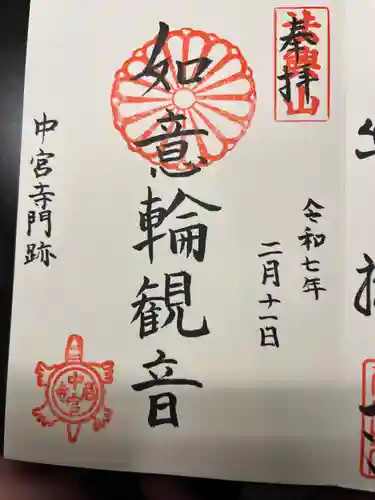 奉拝
令和七年
二月十一日
如意輪観音
中宮寺門跡
中宮